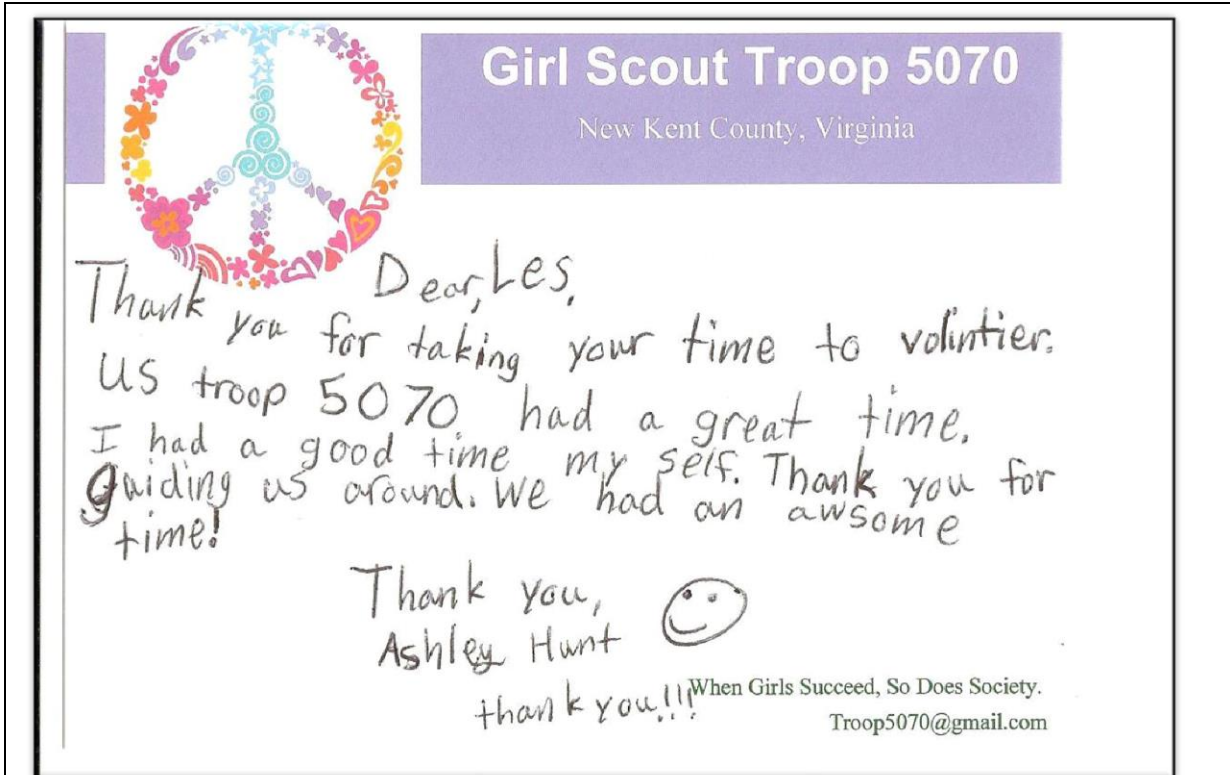 Girl Scout Troop 5070
New Kent County, Virginia
Dear, Les,
Thank you for taking your time to volintier.
US troop 5070 had a great time.
I had a good time my self. Thank you for
guiding us around. We had an awsome
time!
Thank you,
Ashley Hunt
thank you!!!
When Girls Succeed, So Does Society.
Troop5070@gmail.com